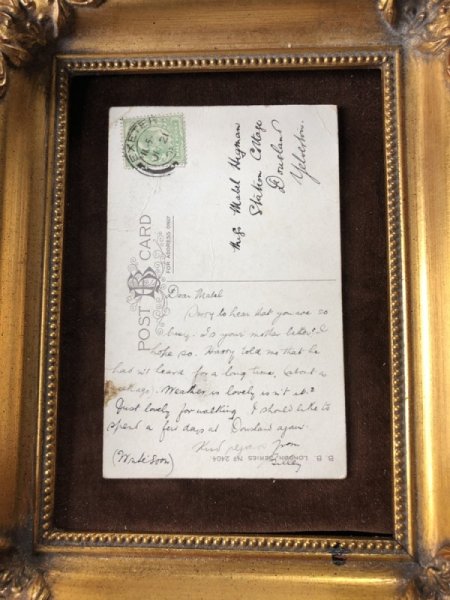 EXETER
POST CARD
FOR ADDRESS ONLY
Miss Mabel Hyman
Station Cottage
Dousland
Yelverton
Dear Mabel
Sorry to hear that you are so
busy. Is your mother better? I
hope so. Harry told me that he
had leave for a long time, (about a
Weather is lovely isn't it?
Just lovely for walking. I should like to
spend a few days at Dousland again.
Kind regards from
(Write soon)
B. B. LONDON, SERIES No 2404